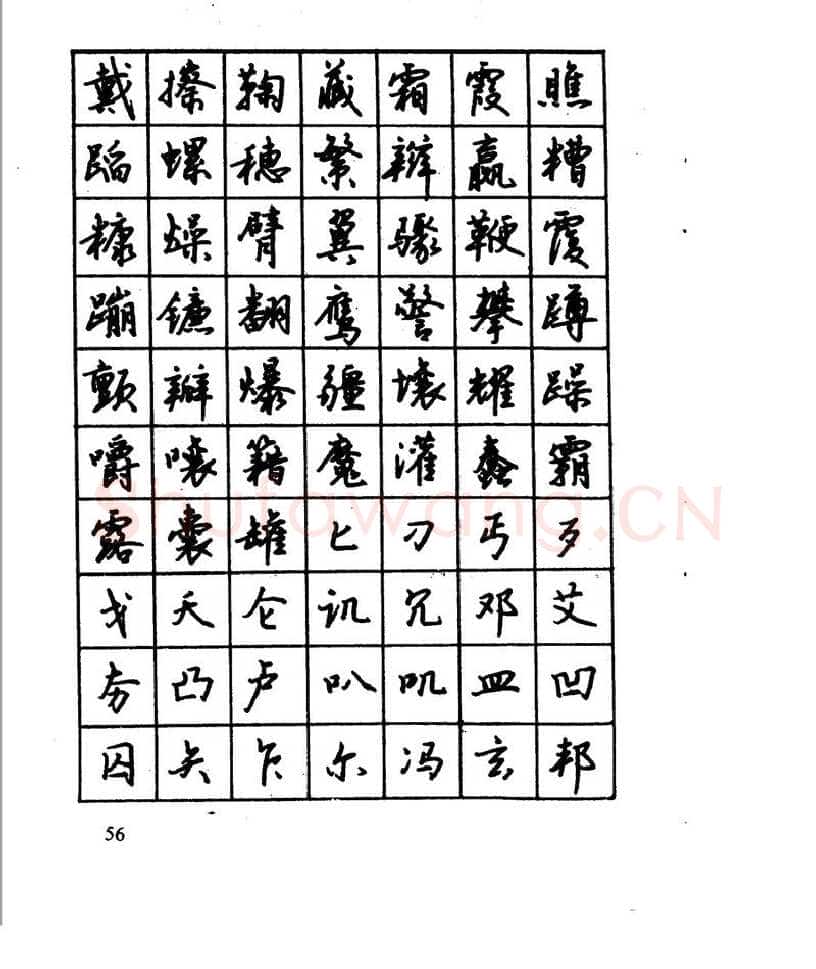 戴擦鞠藏霜霞瞧
蹈螺穗繁辫赢糟
糠燥臂翼骤鞭覆
蹦镰翻鹰警攀蹲
颤瓣爆疆壤耀躁
嚼嚷籍魔灌蠢霸
Shufawang.CN
露囊罐匕刁丐歹
戈夭仑讥冗邓艾
夯凸卢叭叽皿凹
囚矢乍尔冯玄邦
56